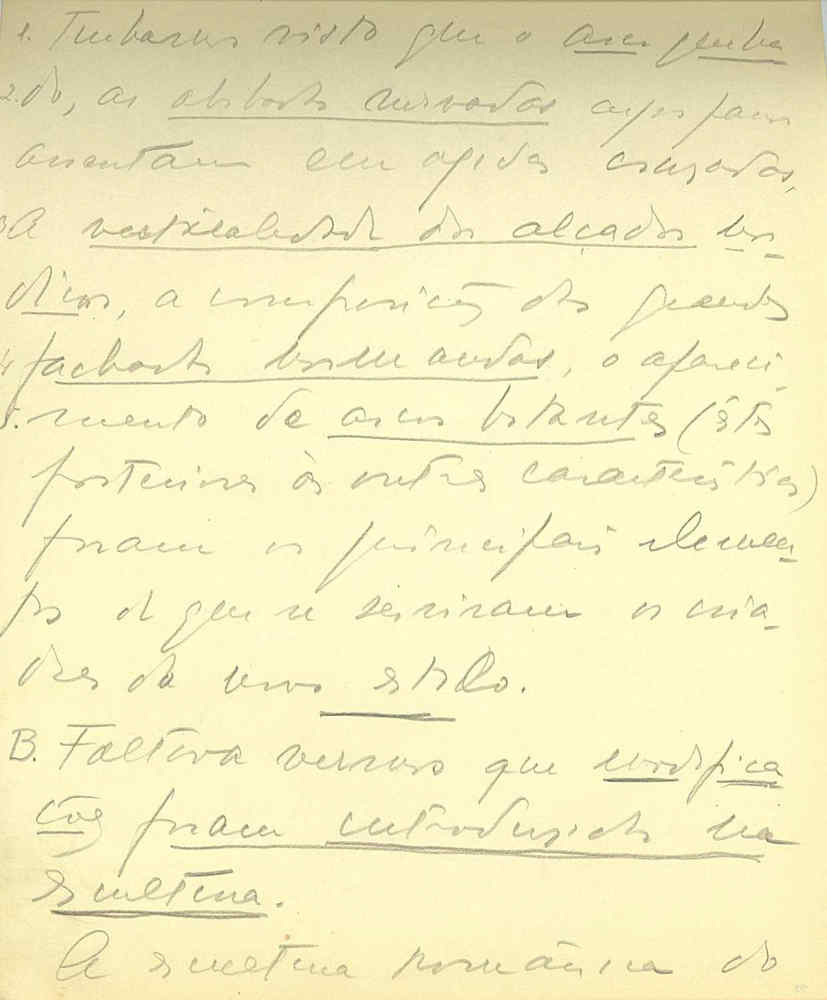 1. Tinhamos visto que o arco quebra
2. do, as abóbadas nervadas cujos panos
assentam em ogivas cruzadas,
3 a verticalidade dos alçados
a composição das grandes
4 fachadas o apareci-
5. mento de arcos botantes (êstes
posteriores às outras características)
foram os principais elemen-
tos de que se serviram os cria-
dores do novo estilo.
B. Faltava vermos que modifica
ções foram introduzidas na
escultura.
A escultura românica do